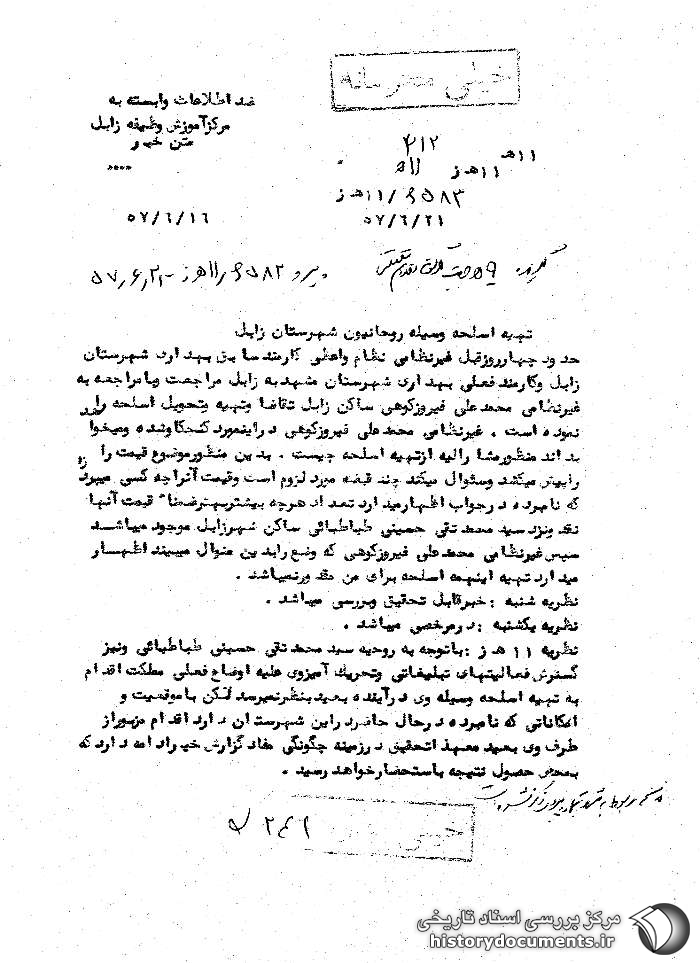 خیلی محرمانه
ضد اطلاعات وابسته به
مرکز آموزش وظیفه زابل
متن خبر
۴۱۲
۱۱ه
۱۱ هـ ز
۶۵۸۳/ ۱۱هـ ز
۵۷/۶/۱۶
۵۷/۶/۲۱
پیرو ۶۵۸۲/ ۱۱هـ ز
تهیه اسلحه وسیله روحانیون شهرستان زابل
حدود چهارروز قبل غیرنظامی نظام واعظی کارمند سابق بهداری شهرستان
زابل وکارمند فعلی بهداری شهرستان مشهد به زابل مراجعت وبا مراجعه به
غیرنظامی محمدعلی فیروزکوهی ساکن زابل تقاضا وتهیه وتحویل اسلحه را
نموده است . غیرنظامی محمدعلی فیروزکوهی دراینمورد کنجکاوشده ومیخواهد
بداند منظورمشارالیه ازتهیه اسلحه چیست . بدین منظورموضوع قیمت را
راپیش میکشد وسئوال میکند چند قبضه مورد لزوم است وقیمت آنرا چه کسی میپردازد
که نامبرده درجواب اظهارمیدارد تعداد هرچه بیشتربهترضمنا" قیمت آنها
نقد ونزد سید محمدتقی حسینی طباطبائی ساکن شهرزابل موجود میباشد
سپس غیرنظامی محمدعلی فیروزکوهی که وضع رابدین منوال میبیند اظهار
میدارد تهیه اینهمه اسلحه برای من مقدورنمیباشد .
نظریه شنبه : خبرقابل تحقیق وبررسی میباشد .
نظریه یکشنبه : درمرخصی میباشد .
نظریه ۱۱ هـ ز : باتوجه به روحیه سید محمدتقی حسینی طباطبائی ونیز
گسترش فعالیتهای تبلیغاتی وتحریک آمیزوی علیه اوضاع فعلی مملکت اقدام
به تهیه اسلحه وسیله وی درآینده بعید بنظرنمیرسد لکن باموقعیت و
امکاناتی که نامبرده درحال حاضردراین شهرستان دارد اقدام مزبوراز
طرف وی بعید معهذا تحقیق درزمینه چگونگی مفاد گزارش خبرادامه دارد که
بمحض حصول نتیجه باستحضارخواهد رسید .
مرکز بررسی اسناد تاریخی
historydocuments.ir